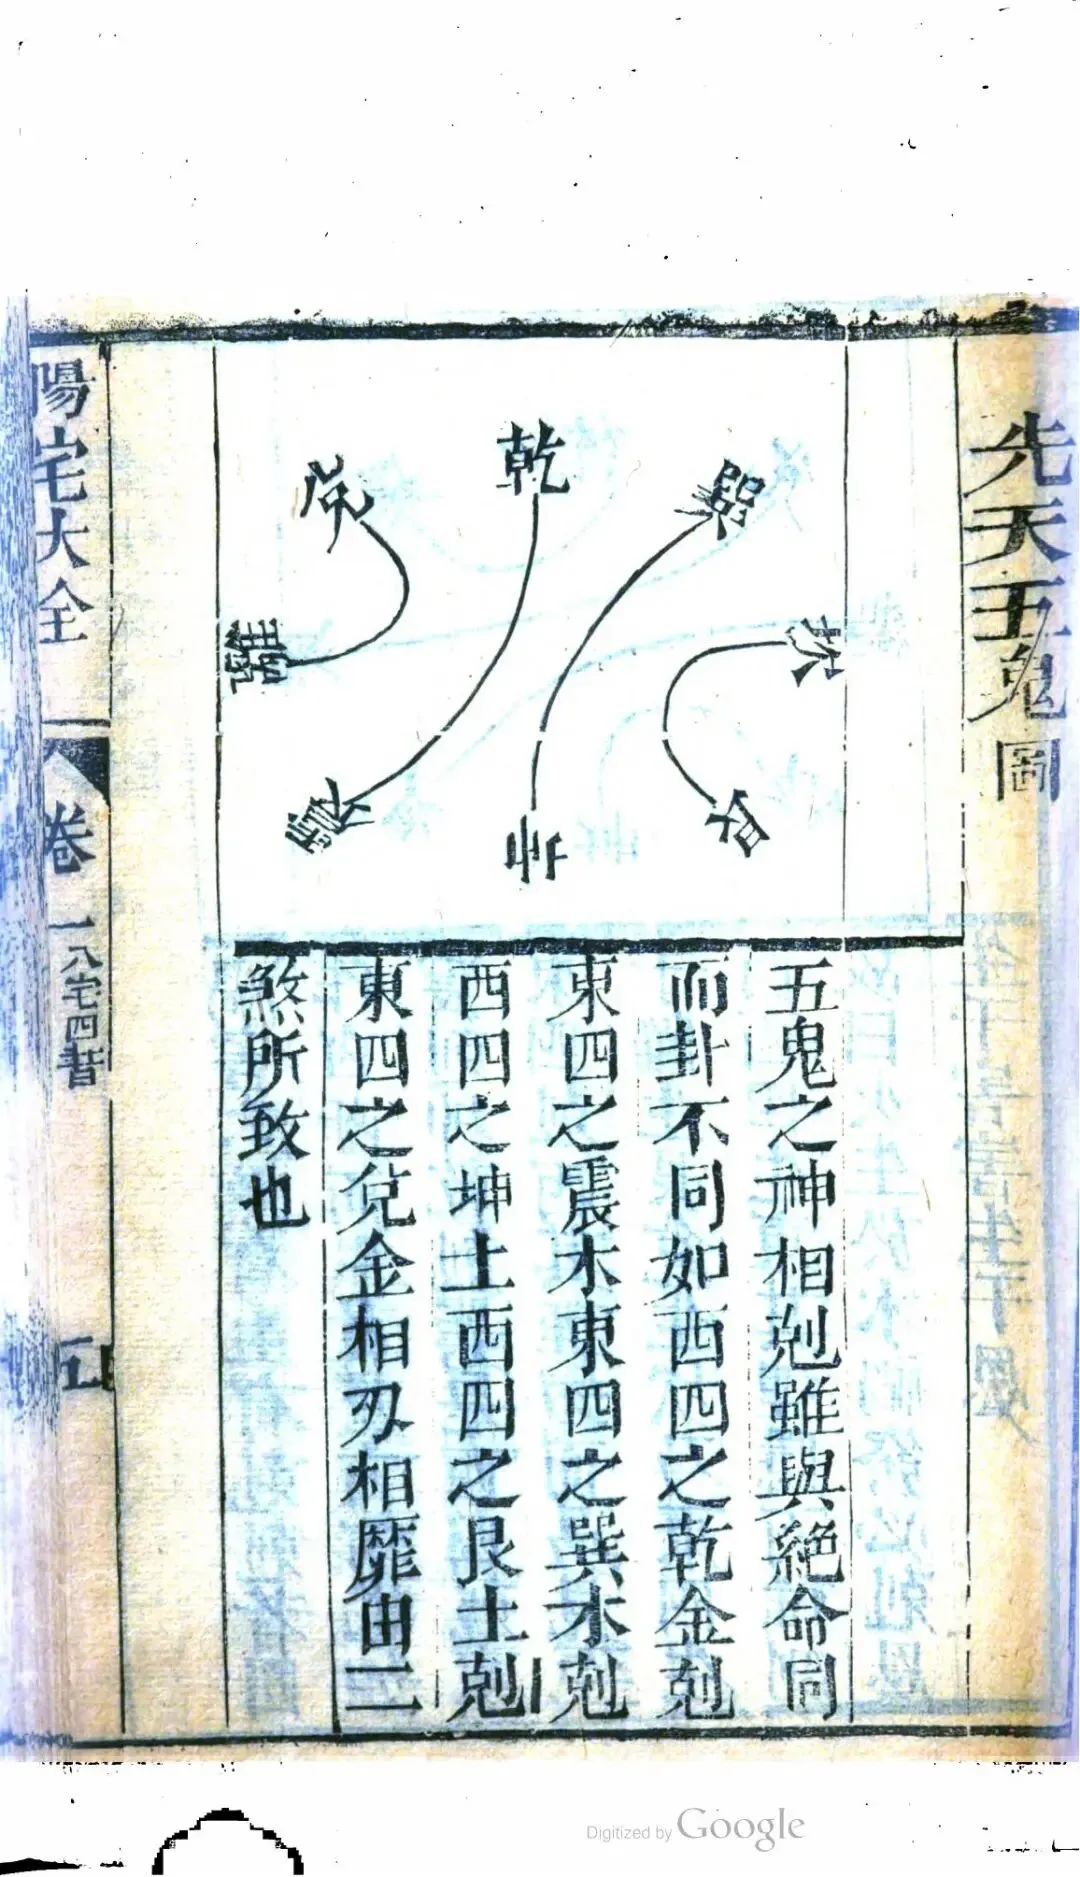 先天五鬼圖
乾
兌
巽
離
坎
震
坤
艮
五鬼之神相剋雖與絕命同
而卦不同如西四之乾金剋
東四之震木東四之巽木剋
西四之坤土西四之艮土剋
東四之兌金相刃相靡由二
煞所致也
陽宅大全
卷一 八宅四書
五
Digitized by Google